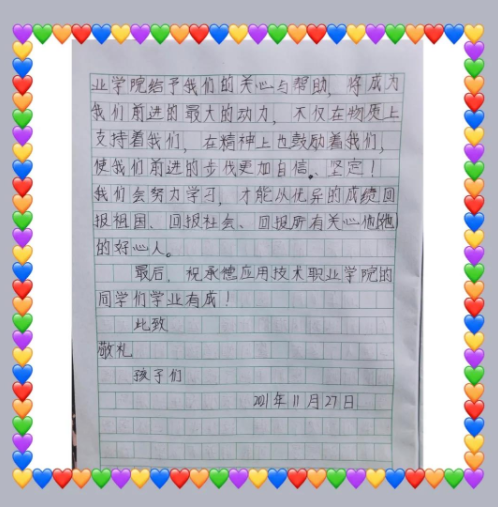 业学院给予我们的关心与帮助，将成为
我们前进的最大的动力，不仅在物质上
支持着我们，在精神上也鼓励着我们，
使我们前进的步伐更加自信。坚定！
我们会努力学习，才能从优异的成绩回
报祖国、回报社会、回报所有关心他
的好心人。
最后，祝承德应用技术职业学院的
同学们学业有成！
此致
敬礼
孩子们
11月27日